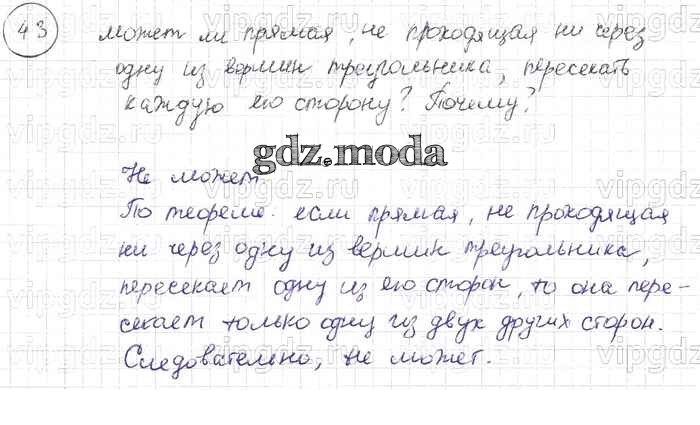 43 может ли прямая, не проходящая ни через
одну из вершин треугольника, пересекать
каждую его сторону? Почему?
gdz.moda
Не может.
По теореме: если прямая, не проходящая
ни через одну из вершин треугольника,
пересекает одну из его сторон, то она пере-
секает только одну из двух других сторон.
Следовательно, не может.